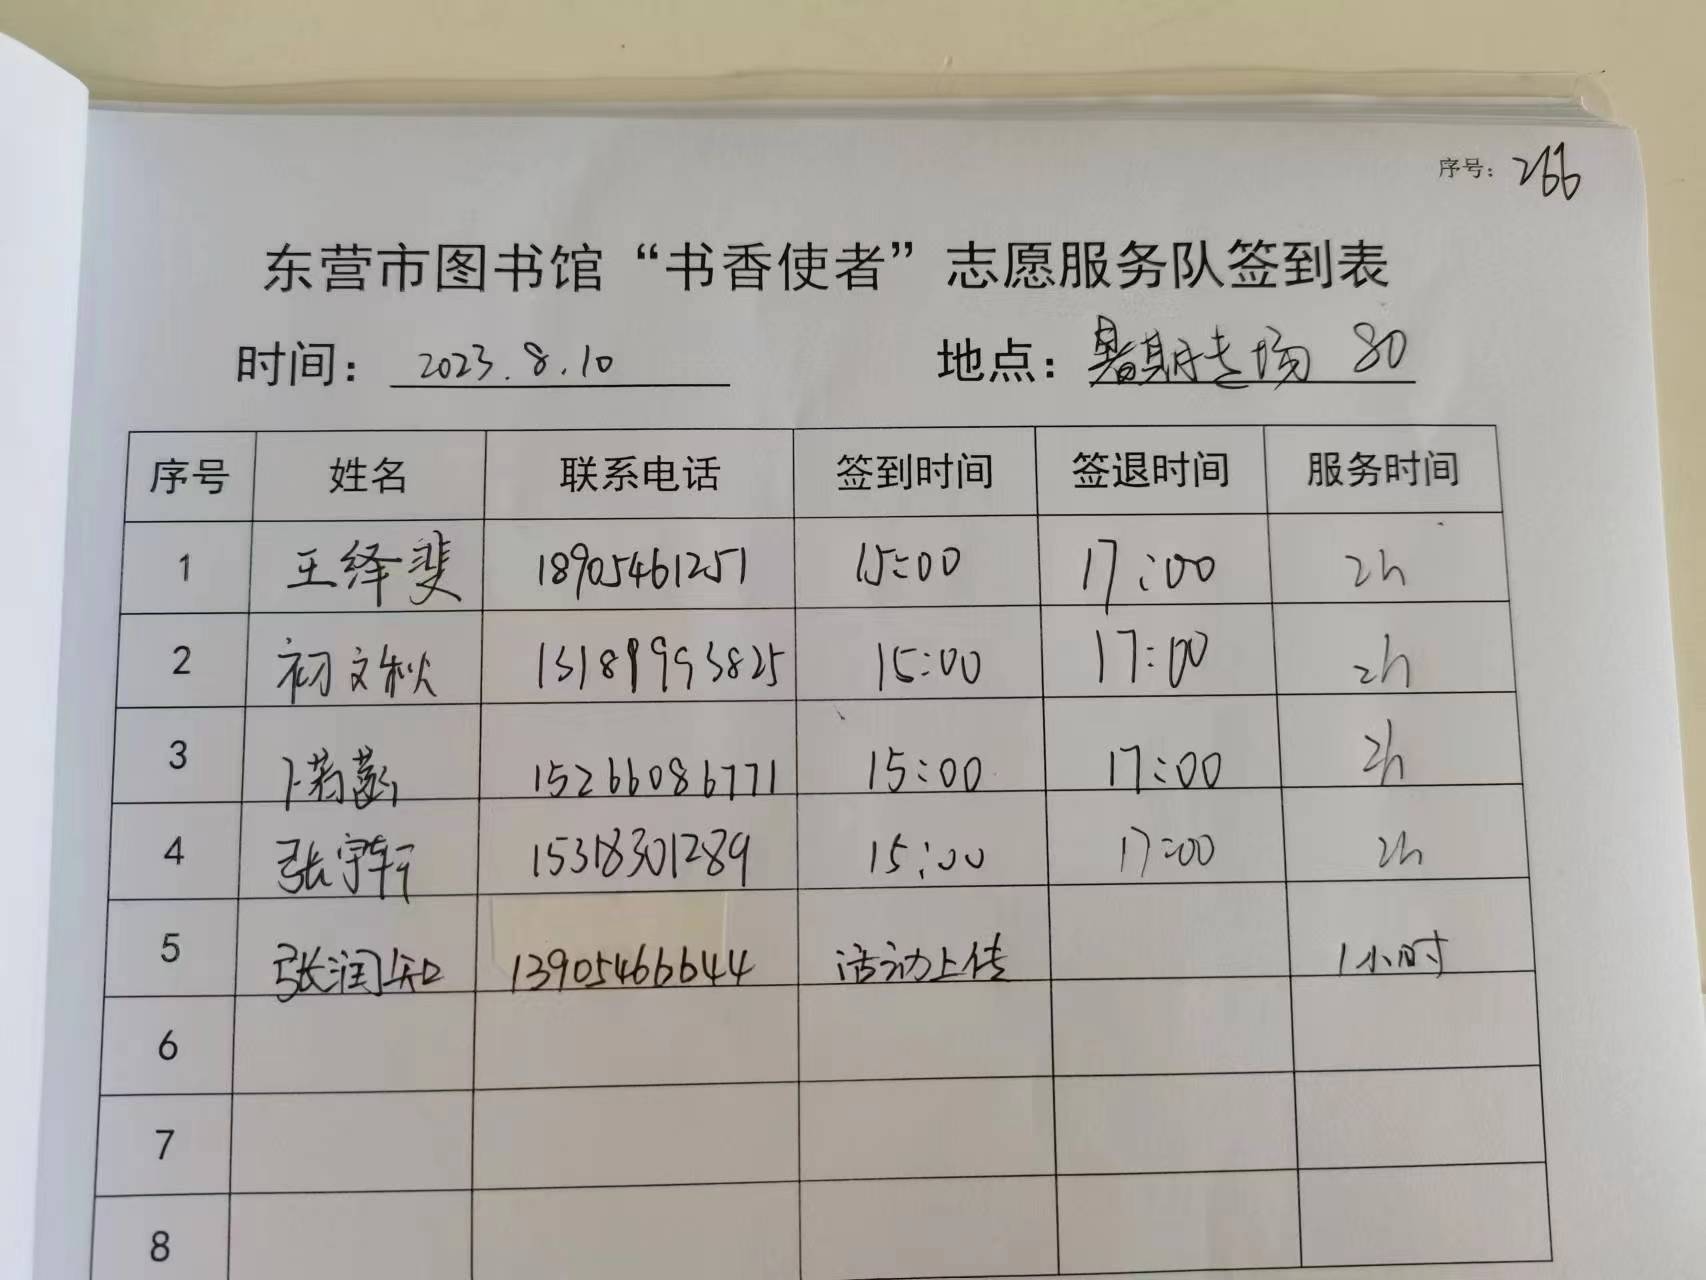 序号: 266
东营市图书馆“书香使者”志愿服务队签到表
时间: 2023.8.10 地点: 暑期专场 80
序号 姓名 联系电话 签到时间 签退时间 服务时间
1 王绎斐 18905461251 15:00 17:00 2h
2 初文秋 13181993825 15:00 17:00 2h
3 15266086771 15:00 17:00 2h
4 张宇轩 15318301289 15:00 17:00 2h
5 张润知 13905466644 活动上传 1小时
6
7
8